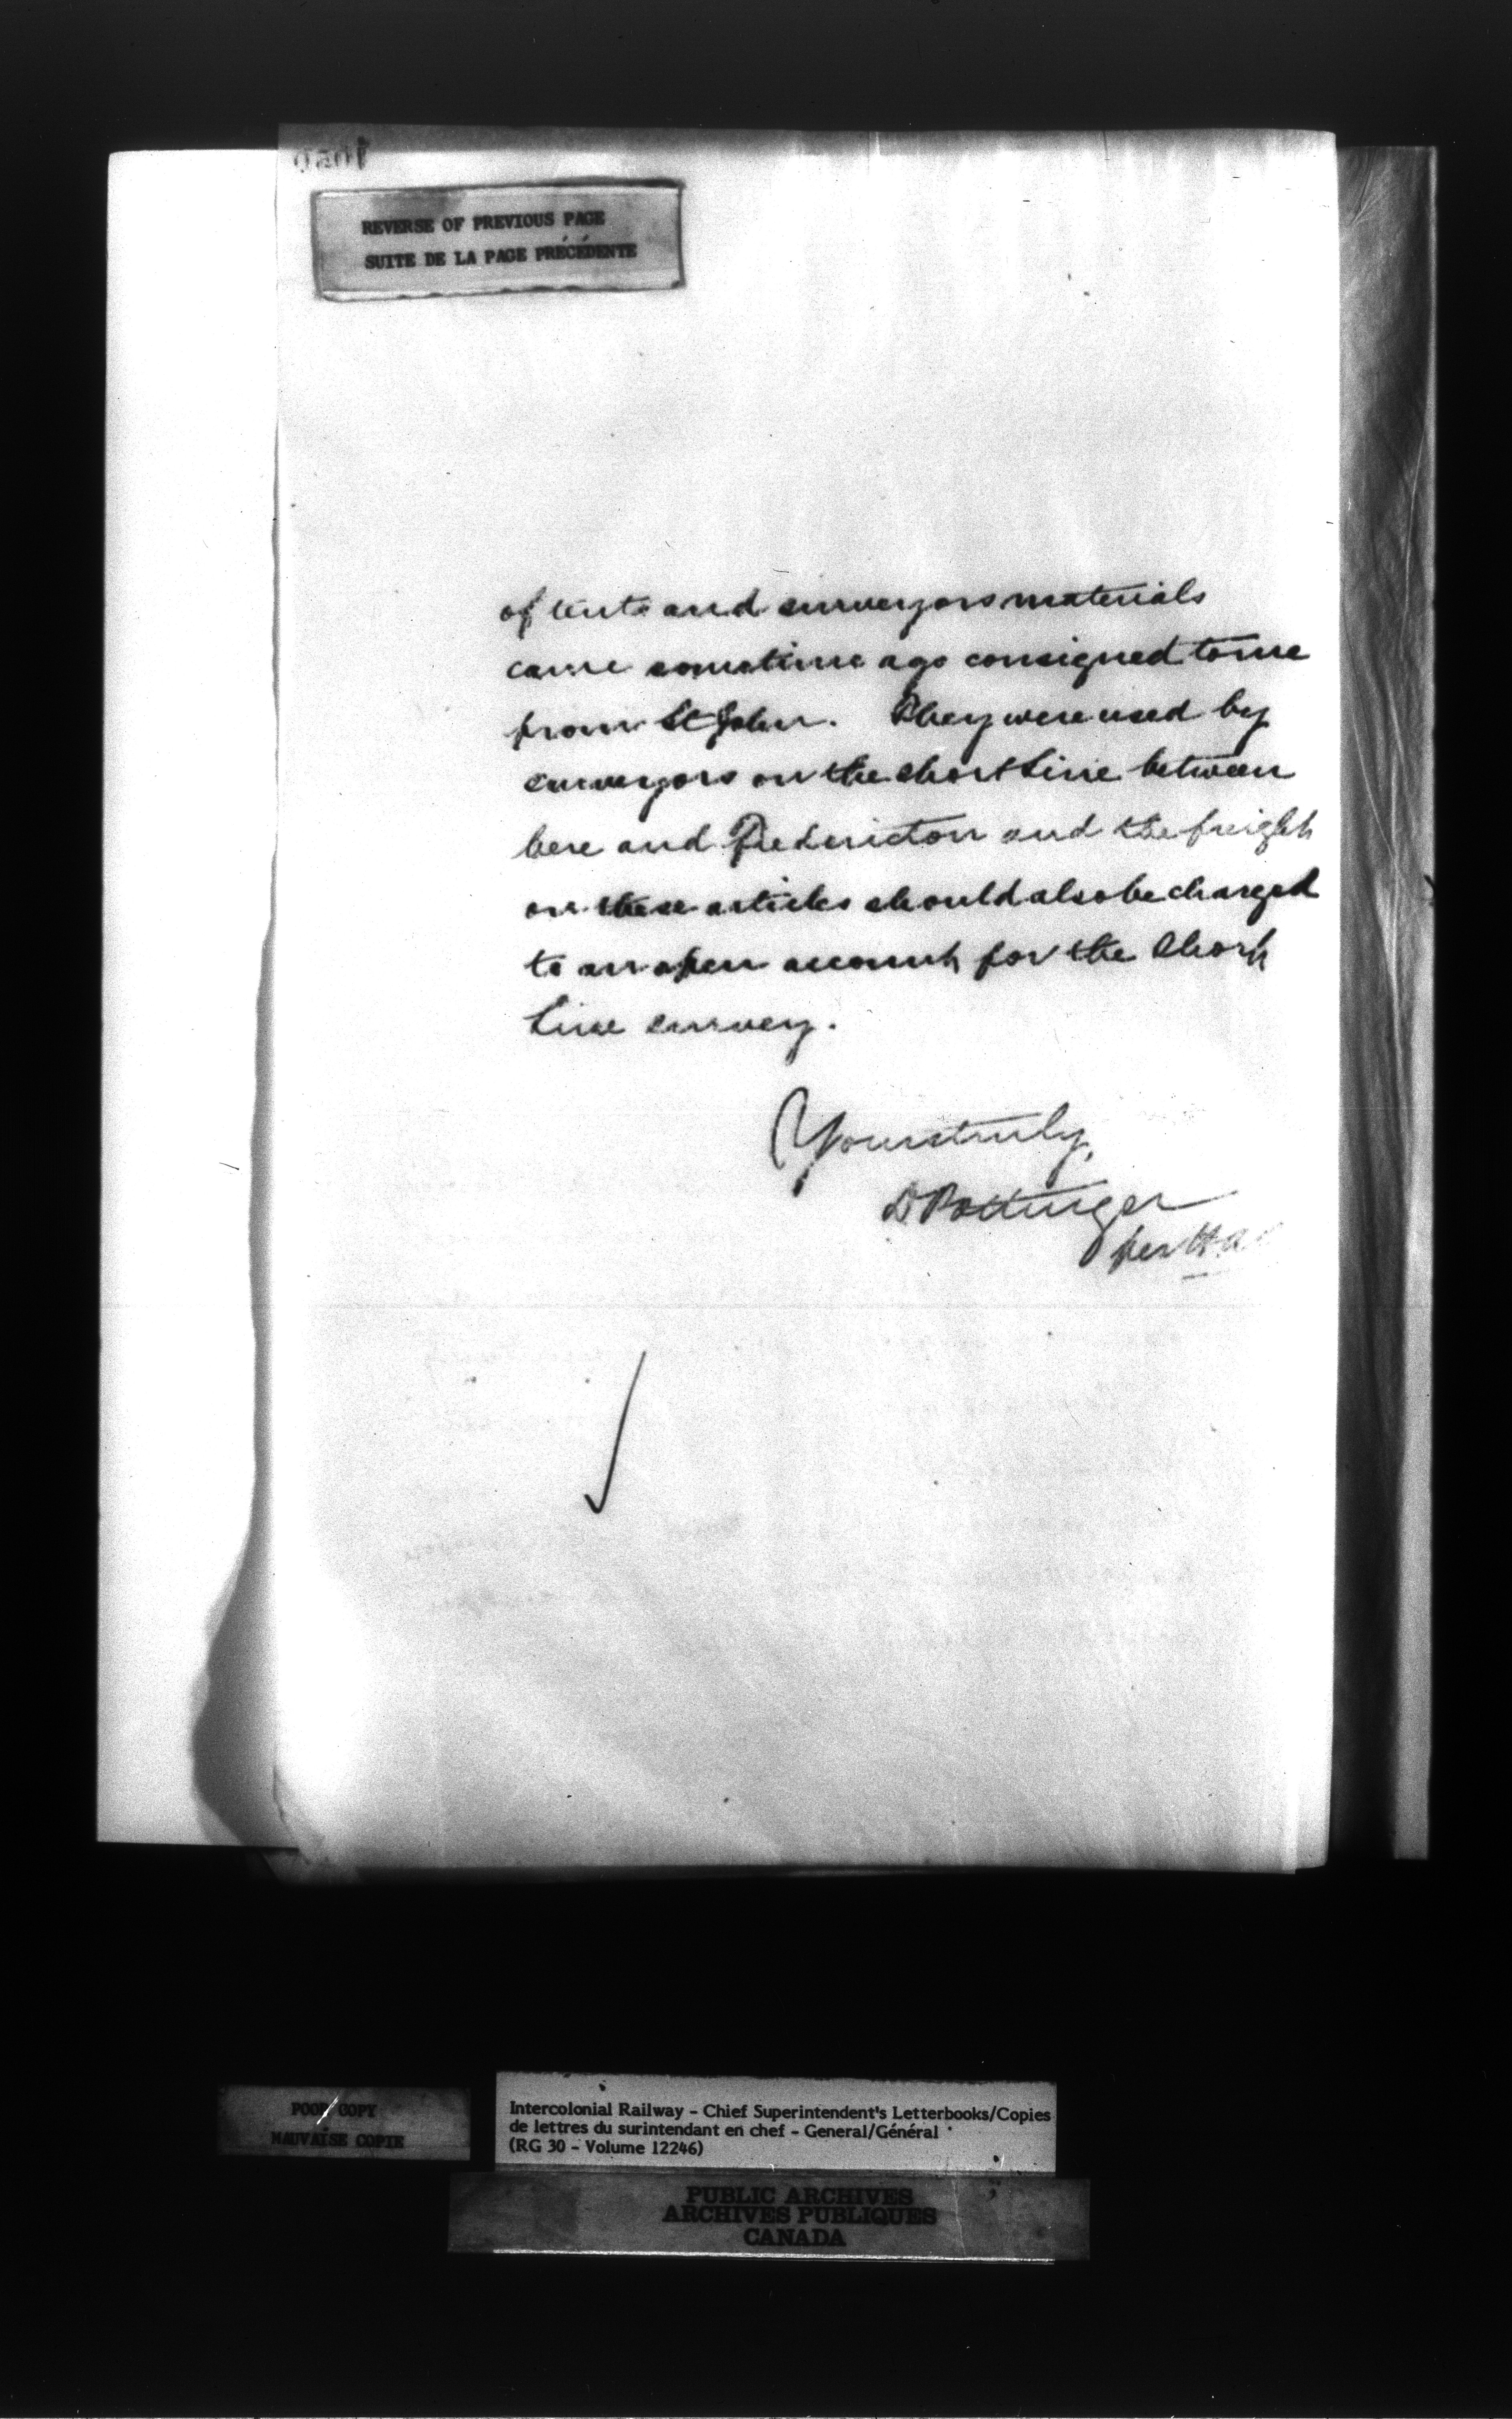 REVERSE OF PREVIOUS PAGE
SUITE DE LA PAGE PRÉCÉDENTE
of tents and surveyors materials
came sometime ago consigned to me
from St John. They were used by
surveyors on the Short Line between
here and Fredericton and the freight
on these articles should also be charged
to an open account for the Short
Line survey.
Yours truly,
D Pottinger
per H A
POOR COPY
MAUVAISE COPIE
Intercolonial Railway - Chief Superintendent's Letterbooks/Copies
de lettres du surintendant en chef - General/Général
(RG 30 - Volume 12246)
PUBLIC ARCHIVES
ARCHIVES PUBLIQUES
CANADA